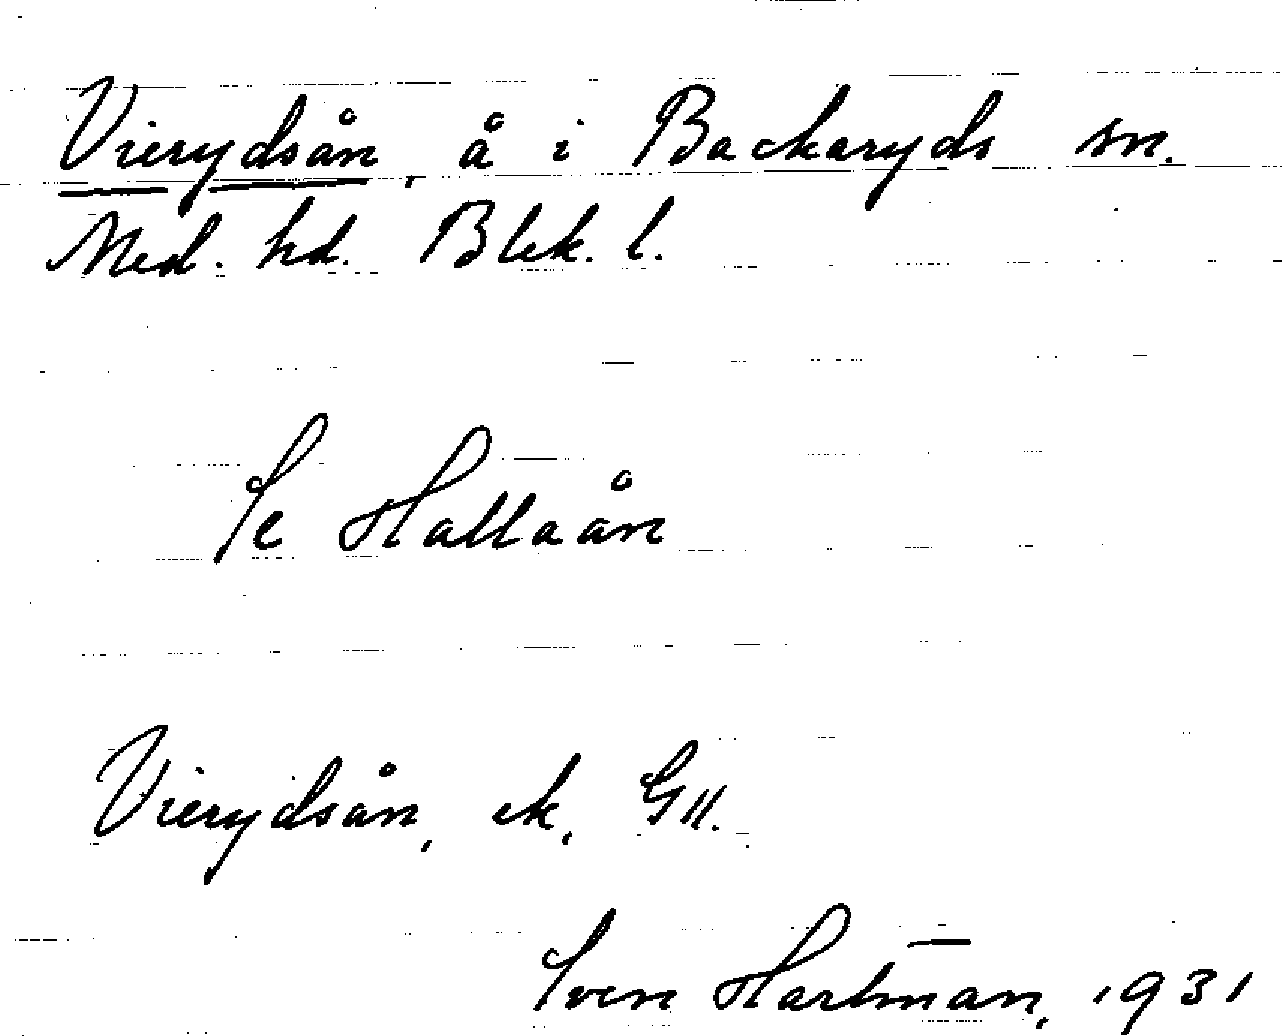 Vierydsån, å i Backaryds sn.
Med. hd. Blek. l.
Se Hallaån
Vierydsån, ek, GII.
Sven Hartman, 1931